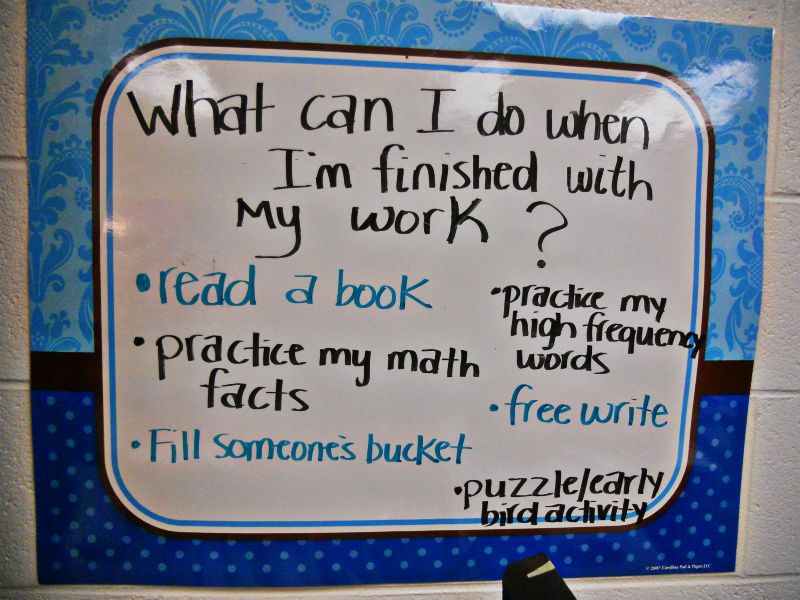 What can I do when
I'm finished with
My work?
• read a book
• practice my math
facts
• Fill someone's bucket
• practice my
high frequency
words
• free write
• puzzle/early
bird activity
© 2007 Carolina Pad & Paper, LLC